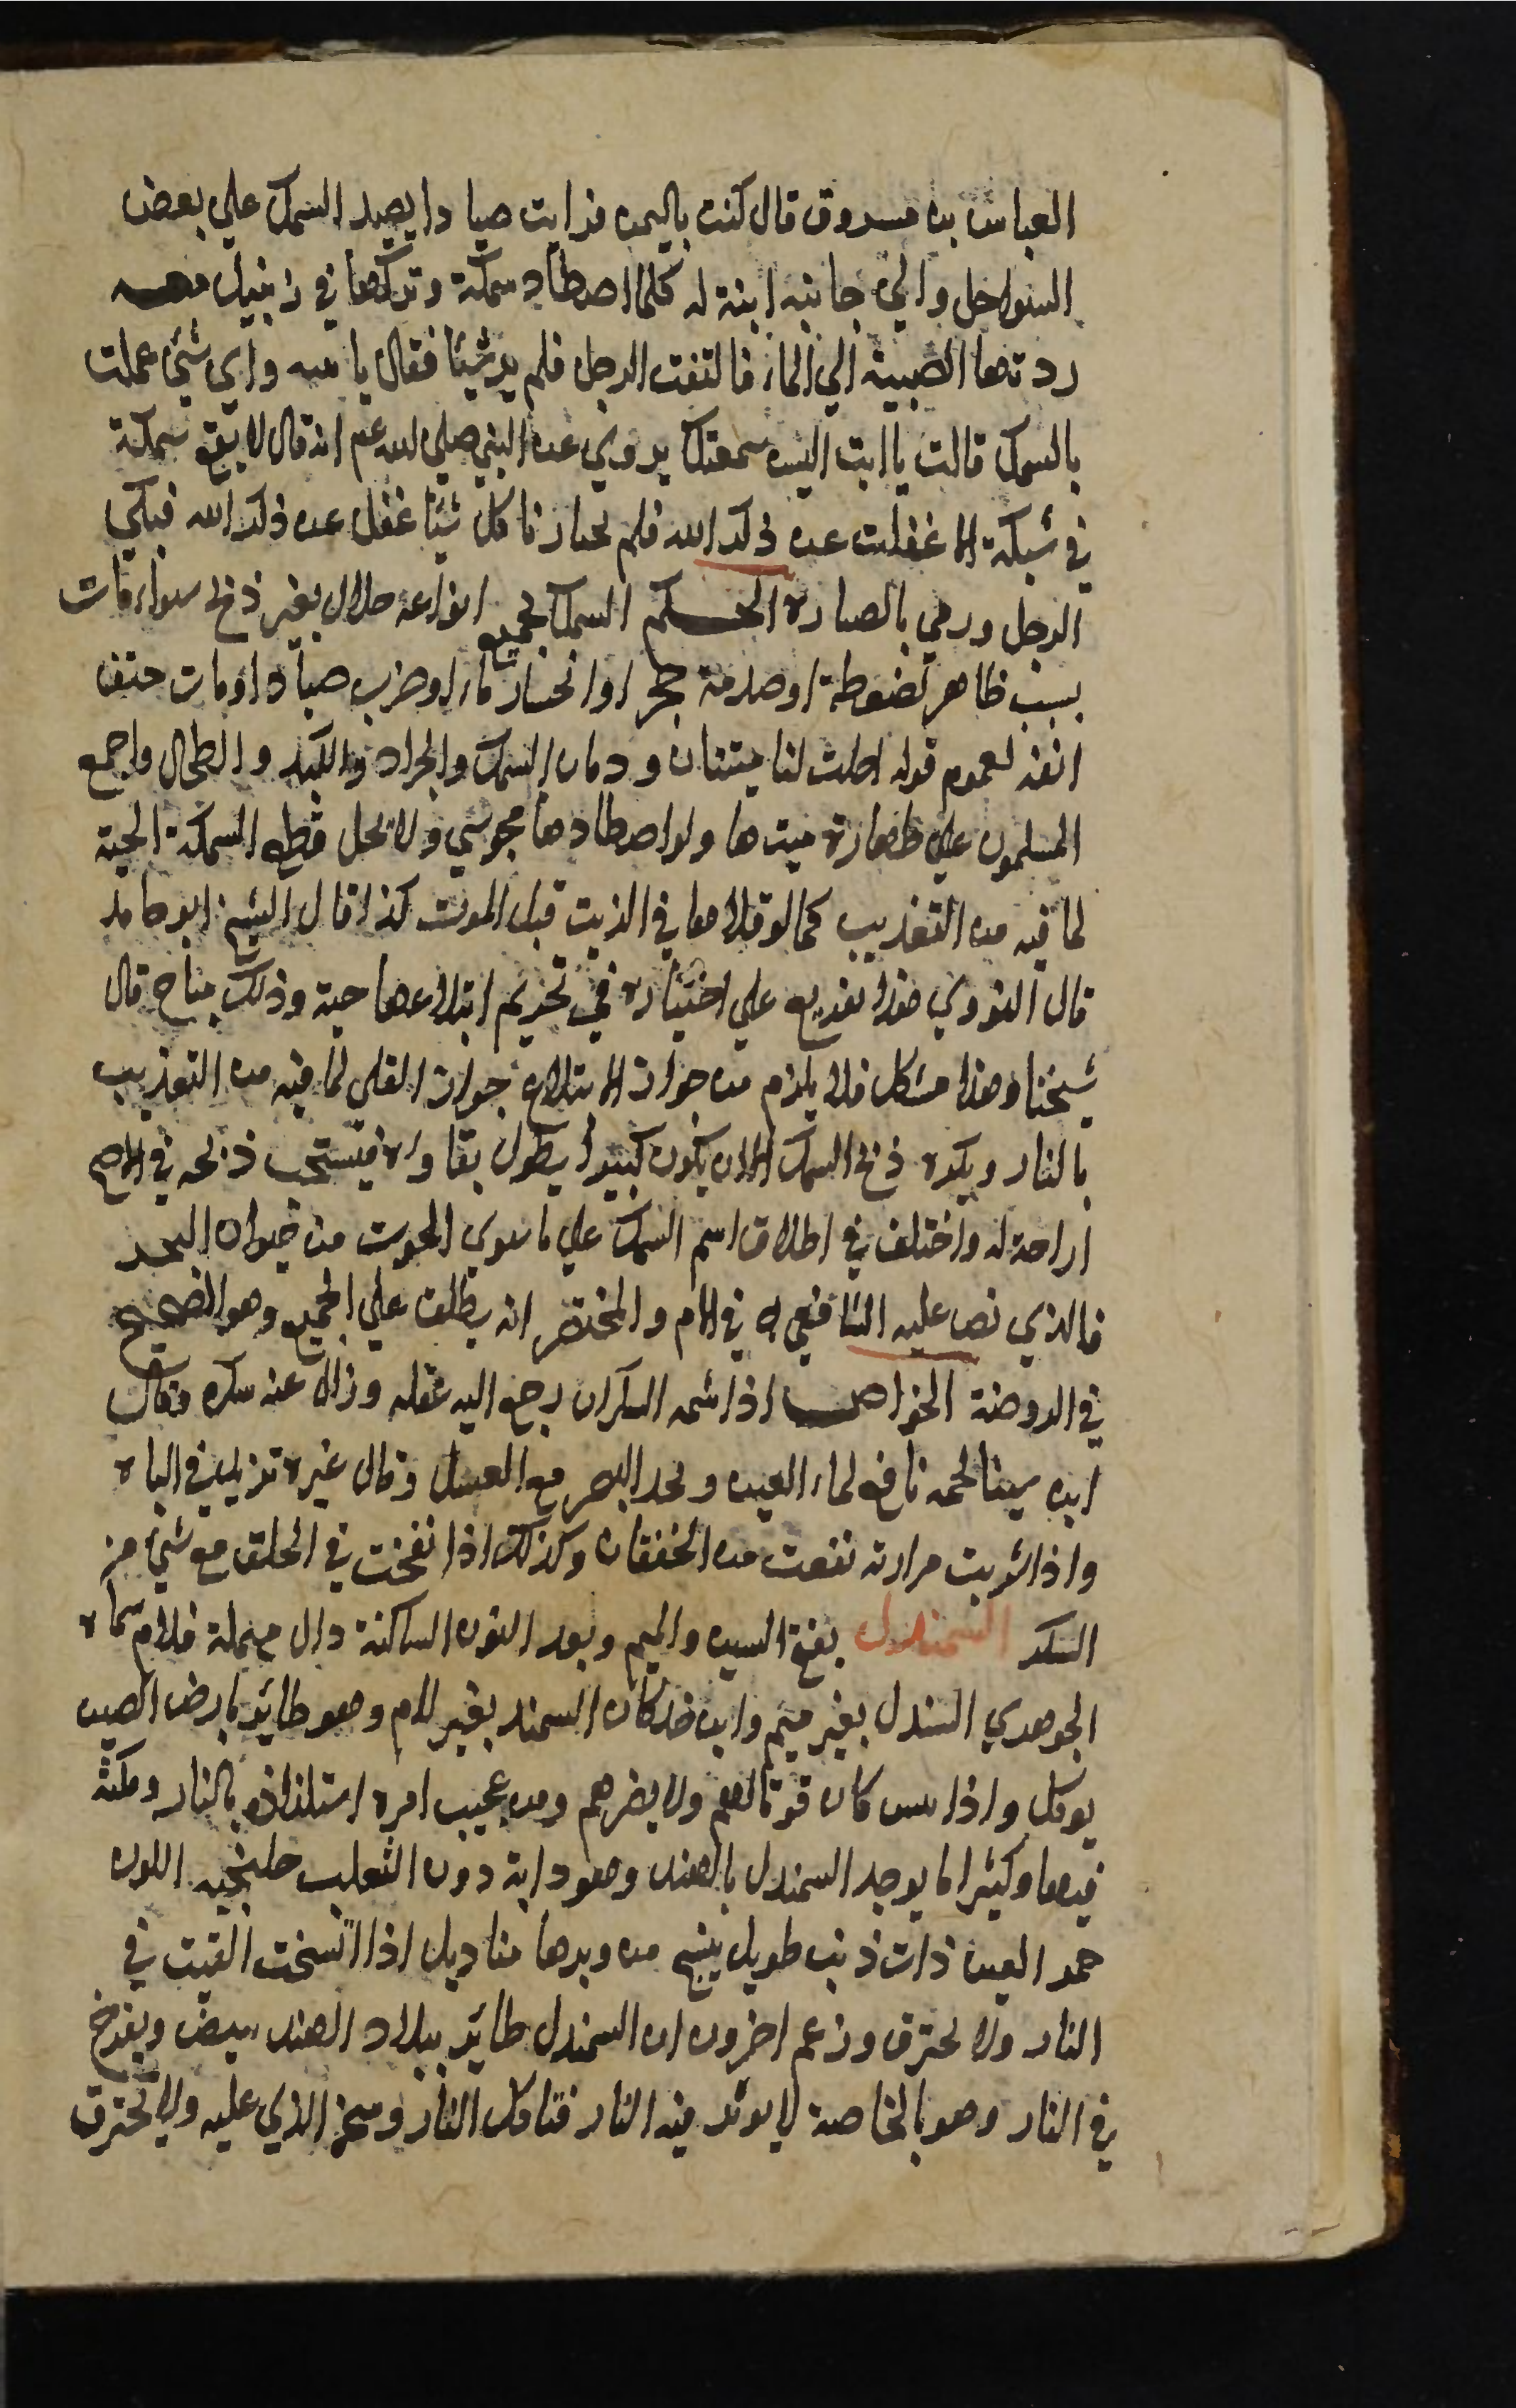 العباس بن مسروق قال كنت باليمن فرايت صيادا يصيد السمك علي بعض
السواحل والي جانبه ابنة له كلما اصطاد سمكة وتركها في زنبيل معه
ردتها الصبية الي الماء فالتفت الرجل فلم ير شيئا فقال يا بنيه واي شئ عملت
بالسمك قالت يا ابت اليس سمعتك يروي عن النبي صلي الله عم انه قال لا يقع سمكة
في شبكة الا غفلت عن ذكر الله فلم نختار ناكل شيئا غفل عن ذكر الله فبكي
الرجل ورمي بالصنارة الحكم السمك بجميع انواعه حلال بغير ذبح سواء مات
بسبب ظاهر كضغطة او صدمة حجر او انحسار ماء او ضرب صياد او مات حتف
انفه لعموم قوله احلت لنا ميتتان ودمان السمك والجراد والكبد والطحال واجمع
المسلمون علي طهارة ميتها ولو اصطادها مجوسي ولا يحل قطع السمكة الحية
لما فيه من التعذيب كما لو قلاها في الزيت قبل الموت كذا قال الشيخ ابو حامد
قال النووي هذا تفريع علي اختياره في تحريم ابتلاعها حية وذلك مباح قال
شيخنا وهذا مشكل فلا يلزم من جواز الابتلاع جواز القلي لما فيه من التعذيب
بالنار ويكره ذبح السمك الا ان يكون كبيرا يطول بقاوه فيستحب ذبحه في الاصح
اراحة له واختلف في اطلاق اسم السمك علي ما سوي الحوت من حيوان البحر
فالذي نص عليه الشافعي في الام والمختصر انه يطلق علي الجميع وهو الصحيح
في الروضة الخواص اذا شمه السكران رجع اليه عقله وزال عنه سكره وقال
ابن سينا لحمه نافع لماء العين ويحد البصر مع العسل وقال غيره تزيد في الباه
واذا شربت مرارته نفعت من الخفقان وكذلك اذا نفخت في الحلق مع شئ من
السكر السمندل بفتح السين والميم وبعد النون الساكنة دال مهملة فلام سماه
الجوهري السندل بغير ميم وابن خلكان السمند بغير لام وهو طائر بارض الصين
يوكل واذا يبس كان قوتا لهم ولا يضرهم ومن عجيب امره استلذاذه بالنار ومكثه
فيها وكثيرا ما يوجد السمندل بالهند وهو دابة دون الثعلب خلنجيه اللون
حمر العين ذات ذنب طويل ينسج من وبرها مناديل اذا اتسخت القيت في
النار ولا تحترق وزعم اخرون ان السمندل طائر ببلاد الهند يبيض ويفرخ
في النار وهو بالخاصة لا يوثر فيه النار فتاكل النار وسخ الذي عليه ولا تحترق